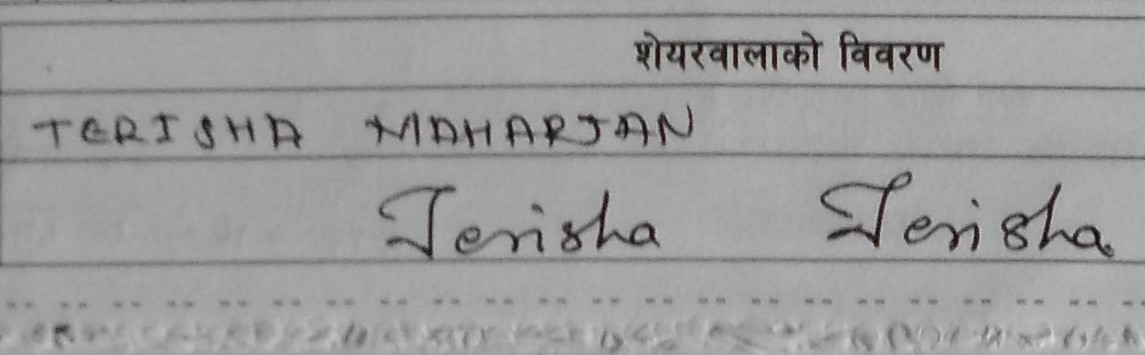 शेयरवालाको विवरण
TERISHA MAHARJAN
Terisha Terisha